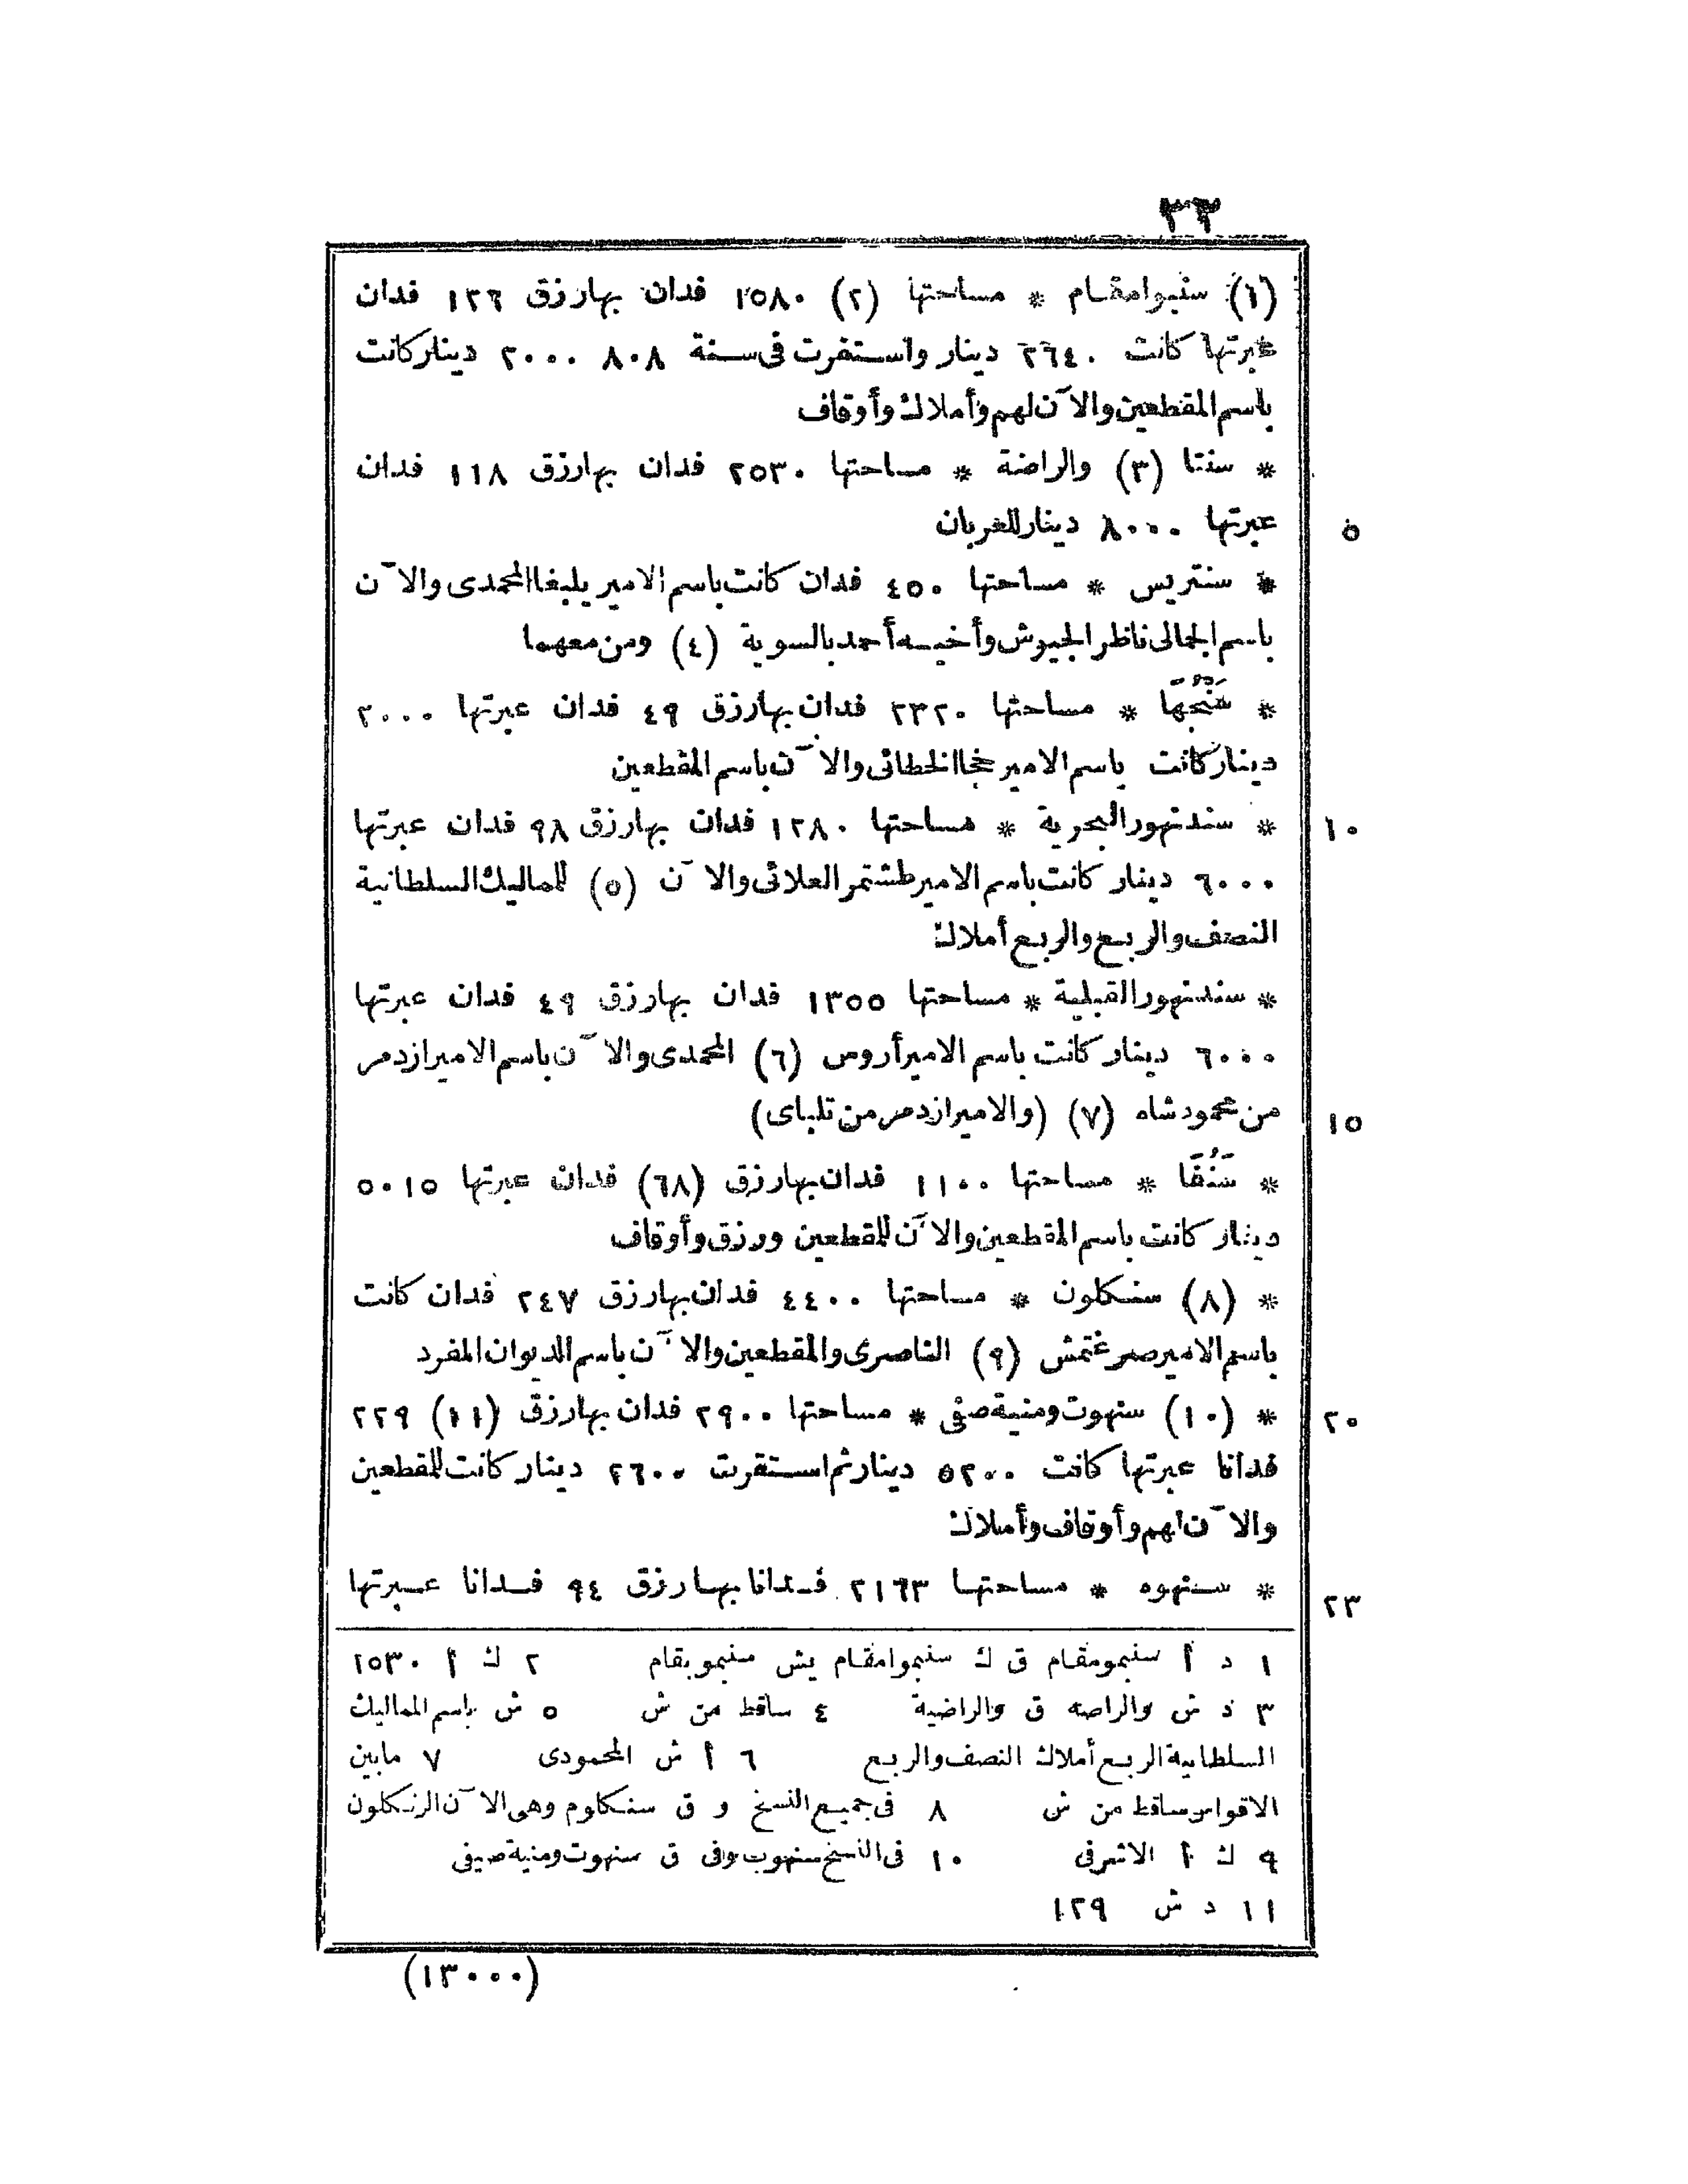 ٣٣
(١) سنبوامقام * مساحتها (٢) ١٥٨٠ فدان بها رزق ١٢٦ فدان
عبرتها كانت ٢٦٤٠ دينار واستقرت فى سنة ٨٠٨ ٢٠٠٠ دينار كانت
باسم المقطعين والآن لهم وأملاك وأوقاف
* سنتا (٣) والراضة * مساحتها ٢٥٣٠ فدان بها رزق ١١٨ فدان
٥ عبرتها ٨٠٠٠ دينار للعربان
* سنتريس * مساحتها ٤٥٠ فدان كانت باسم الامير يلبغا المحمدى والآن
باسم الجمالى ناظر الجيوش وأخيه أحمد بالسوية (٤) ومن معهما
* سَنْجَها * مساحتها ٢٣٢٠ فدان بها رزق ٤٩ فدان عبرتها ٢٠٠٠
دينار كانت باسم الامير خجا الخطائى والآن باسم المقطعين
١٠ * سندنهور البحرية * مساحتها ١٢٨٠ فدان بها رزق ٩٨ فدان عبرتها
٦٠٠٠ دينار كانت باسم الامير طشتمر العلائى والآن (٥) للماليك السلطانية
النصف والربع والربع أملاك
* سندنهور القبلية * مساحتها ١٣٥٥ فدان بها رزق ٤٩ فدان عبرتها
٦٠٠٠ دينار كانت باسم الامير أروس (٦) المحمدى والآن باسم الامير ازدمر
١٥ من محمود شاه (٧) (والامير ازدمر من تلباى)
* سَنُقَا * مساحتها ١١٠٠ فدان بها رزق (٦٨) فدان عبرتها ٥٠١٥
دينار كانت باسم المقطعين والآن للمقطعين ورزق وأوقاف
* (٨) سنكلون * مساحتها ٤٤٠٠ فدان بها رزق ٢٤٧ فدان كانت
باسم الامير صرغتمش (٩) الناصرى والمقطعين والآن باسم الديوان المفرد
٢٠ * (١٠) سنهوت ومنية صفى * مساحتها ٢٩٠٠ فدان بها رزق (١١) ٢٢٩
فدانا عبرتها كانت ٥٢٠٠ دينار ثم استقرت ٢٦٠٠ دينار كانت للمقطعين
والآن لهم وأوقاف وأملاك
٢٣ * سنهوه * مساحتها ٢١٦٣ فدانا بها رزق ٩٤ فدانا عبرتها
١ د أ سنبمومقام ق ك سنبموامقام يش منبموبقام ٢ ك أ ١٥٣٠
٣ د ش والراصه ق والراضية ٤ ساقط من ش ٥ ش باسم المماليك
السلطانية الربع أملاك النصف والربع ٦ أ ش المحمودى ٧ مابين
الاقواس ساقط من ش ٨ فى جميع النسخ و ق سنكلوم وهى الآن الزنكلون
٩ ك أ الاشرفى ١٠ فى النسخ سنهوب وفى ق سنهوت ومنية صيفى
١١ د ش ١٢٩
(١٣٠٠٠)